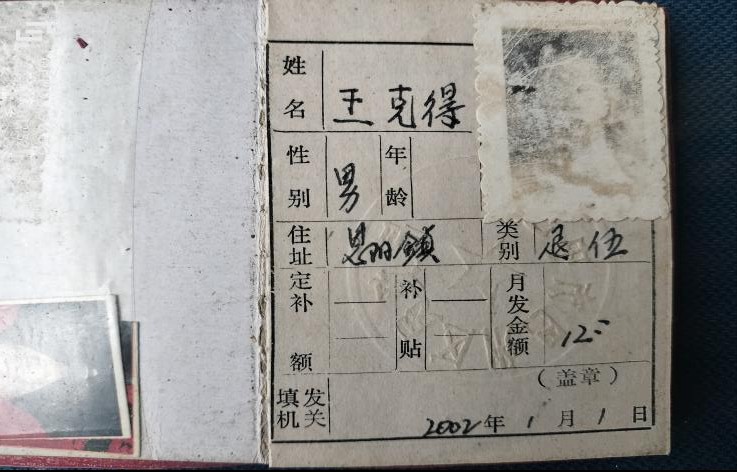 姓名 王克得
性别 男 年龄
住址 鎮 类别 退伍
定补额 补贴 月发金额 12
（盖章）
填发机关
2002年1月1日